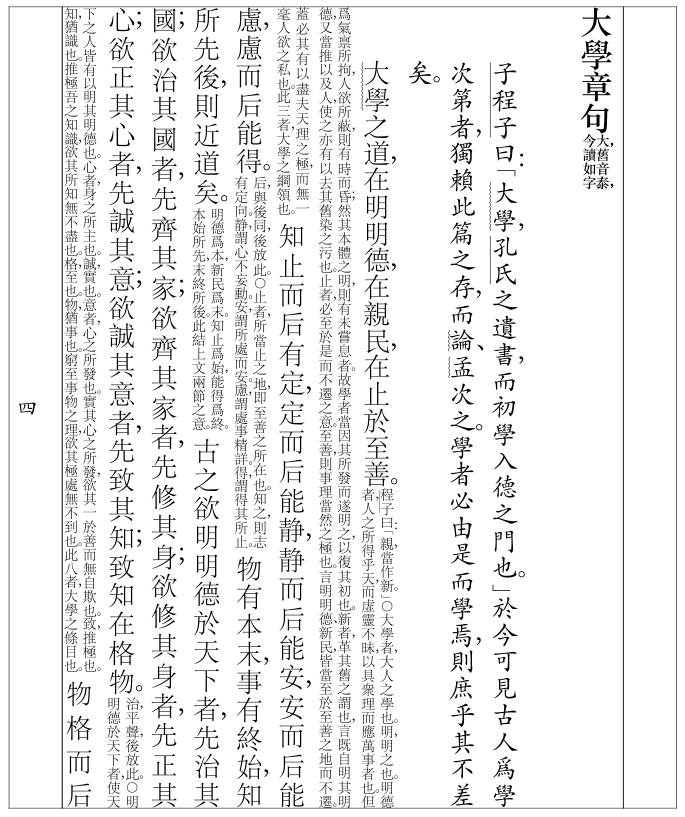 大學章句大，舊音泰，今讀如字。
子程子曰：「大學，孔氏之遺書，而初學入德之門也。」於今可見古人爲學
次第者，獨賴此篇之存，而論、孟次之。學者必由是而學焉，則庶乎其不差
矣。
大學之道，在明明德，在親民，在止於至善。程子曰：「親，當作新。」○大學者，大人之學也。明，明之也。明德者，人之所得乎天，而虛靈不昧，以具衆理而應萬事者也。但
爲氣禀所拘，人欲所蔽，則有時而昏；然其本體之明，則有未嘗息者。故學者當因其所發而遂明之，以復其初也。新者，革其舊之謂也，言既自明其明德，又當推以及人，使之亦有以去其舊染之污也。止者，必至於是而不遷之意。至善，則事理當然之極也。言明明德、新民，皆當至於至善之地而不遷。
蓋必其有以盡夫天理之極，而無一毫人欲之私也。此三者，大學之綱領也。知止而后有定，定而后能静，静而后能安，安而后能
慮，慮而后能得。后，與後同，後放此。○止者，所當止之地，即至善之所在也。知之，則志有定向。静，謂心不妄動。安，謂所處而安。慮，謂處事精詳。得，謂得其所止。物有本末，事有終始，知
所先後，則近道矣。明德爲本，新民爲末。知止爲始，能得爲終。本始所先，末終所後。此結上文兩節之意。古之欲明明德於天下者，先治其
國；欲治其國者，先齊其家；欲齊其家者，先修其身；欲修其身者，先正其
心；欲正其心者，先誠其意；欲誠其意者，先致其知；致知在格物。治，平聲，後放此。○明明德於天下者，使天
下之人皆有以明其明德也。心者，身之所主也。誠，實也。意者，心之所發也。實其心之所發，欲其一於善而無自欺也。致，推極也。知，猶識也。推極吾之知識，欲其所知無不盡也。格，至也。物，猶事也。窮至事物之理，欲其極處無不到也。此八者，大學之條目也。物格而后
四